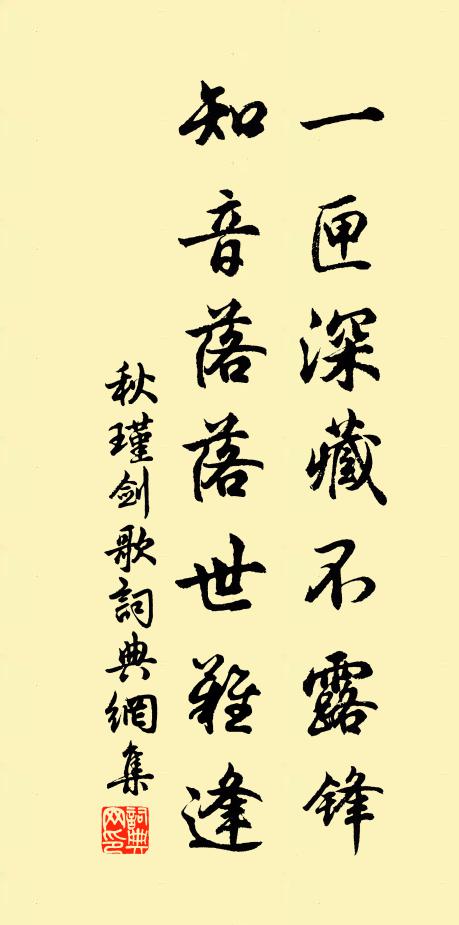 一匣深藏不露鋒
知音落落世難逢
秋瑾劍歌詞典網集
詞典網印